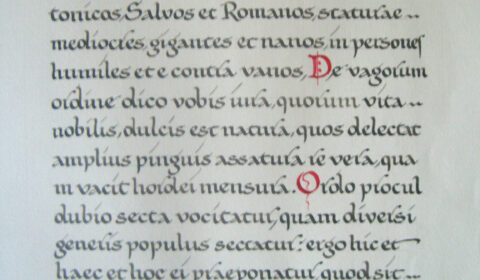 tonicos, Salvos et Romanos, staturae
mediocres, gigantes et nanos, in persones
humiles et e contra vanos, De vagorum
ordine dico vobis iura, quorum vita --
nobilis, dulcis est natura, quos delectat
amplius pinguis assatura re vera, qua
m vacit hordei mensura. Ordo procul
dubio secta vocitatur, quam diversi
generis populus sectatur: ergo hic et
haec et hoc ei praeponatur, quod sit --